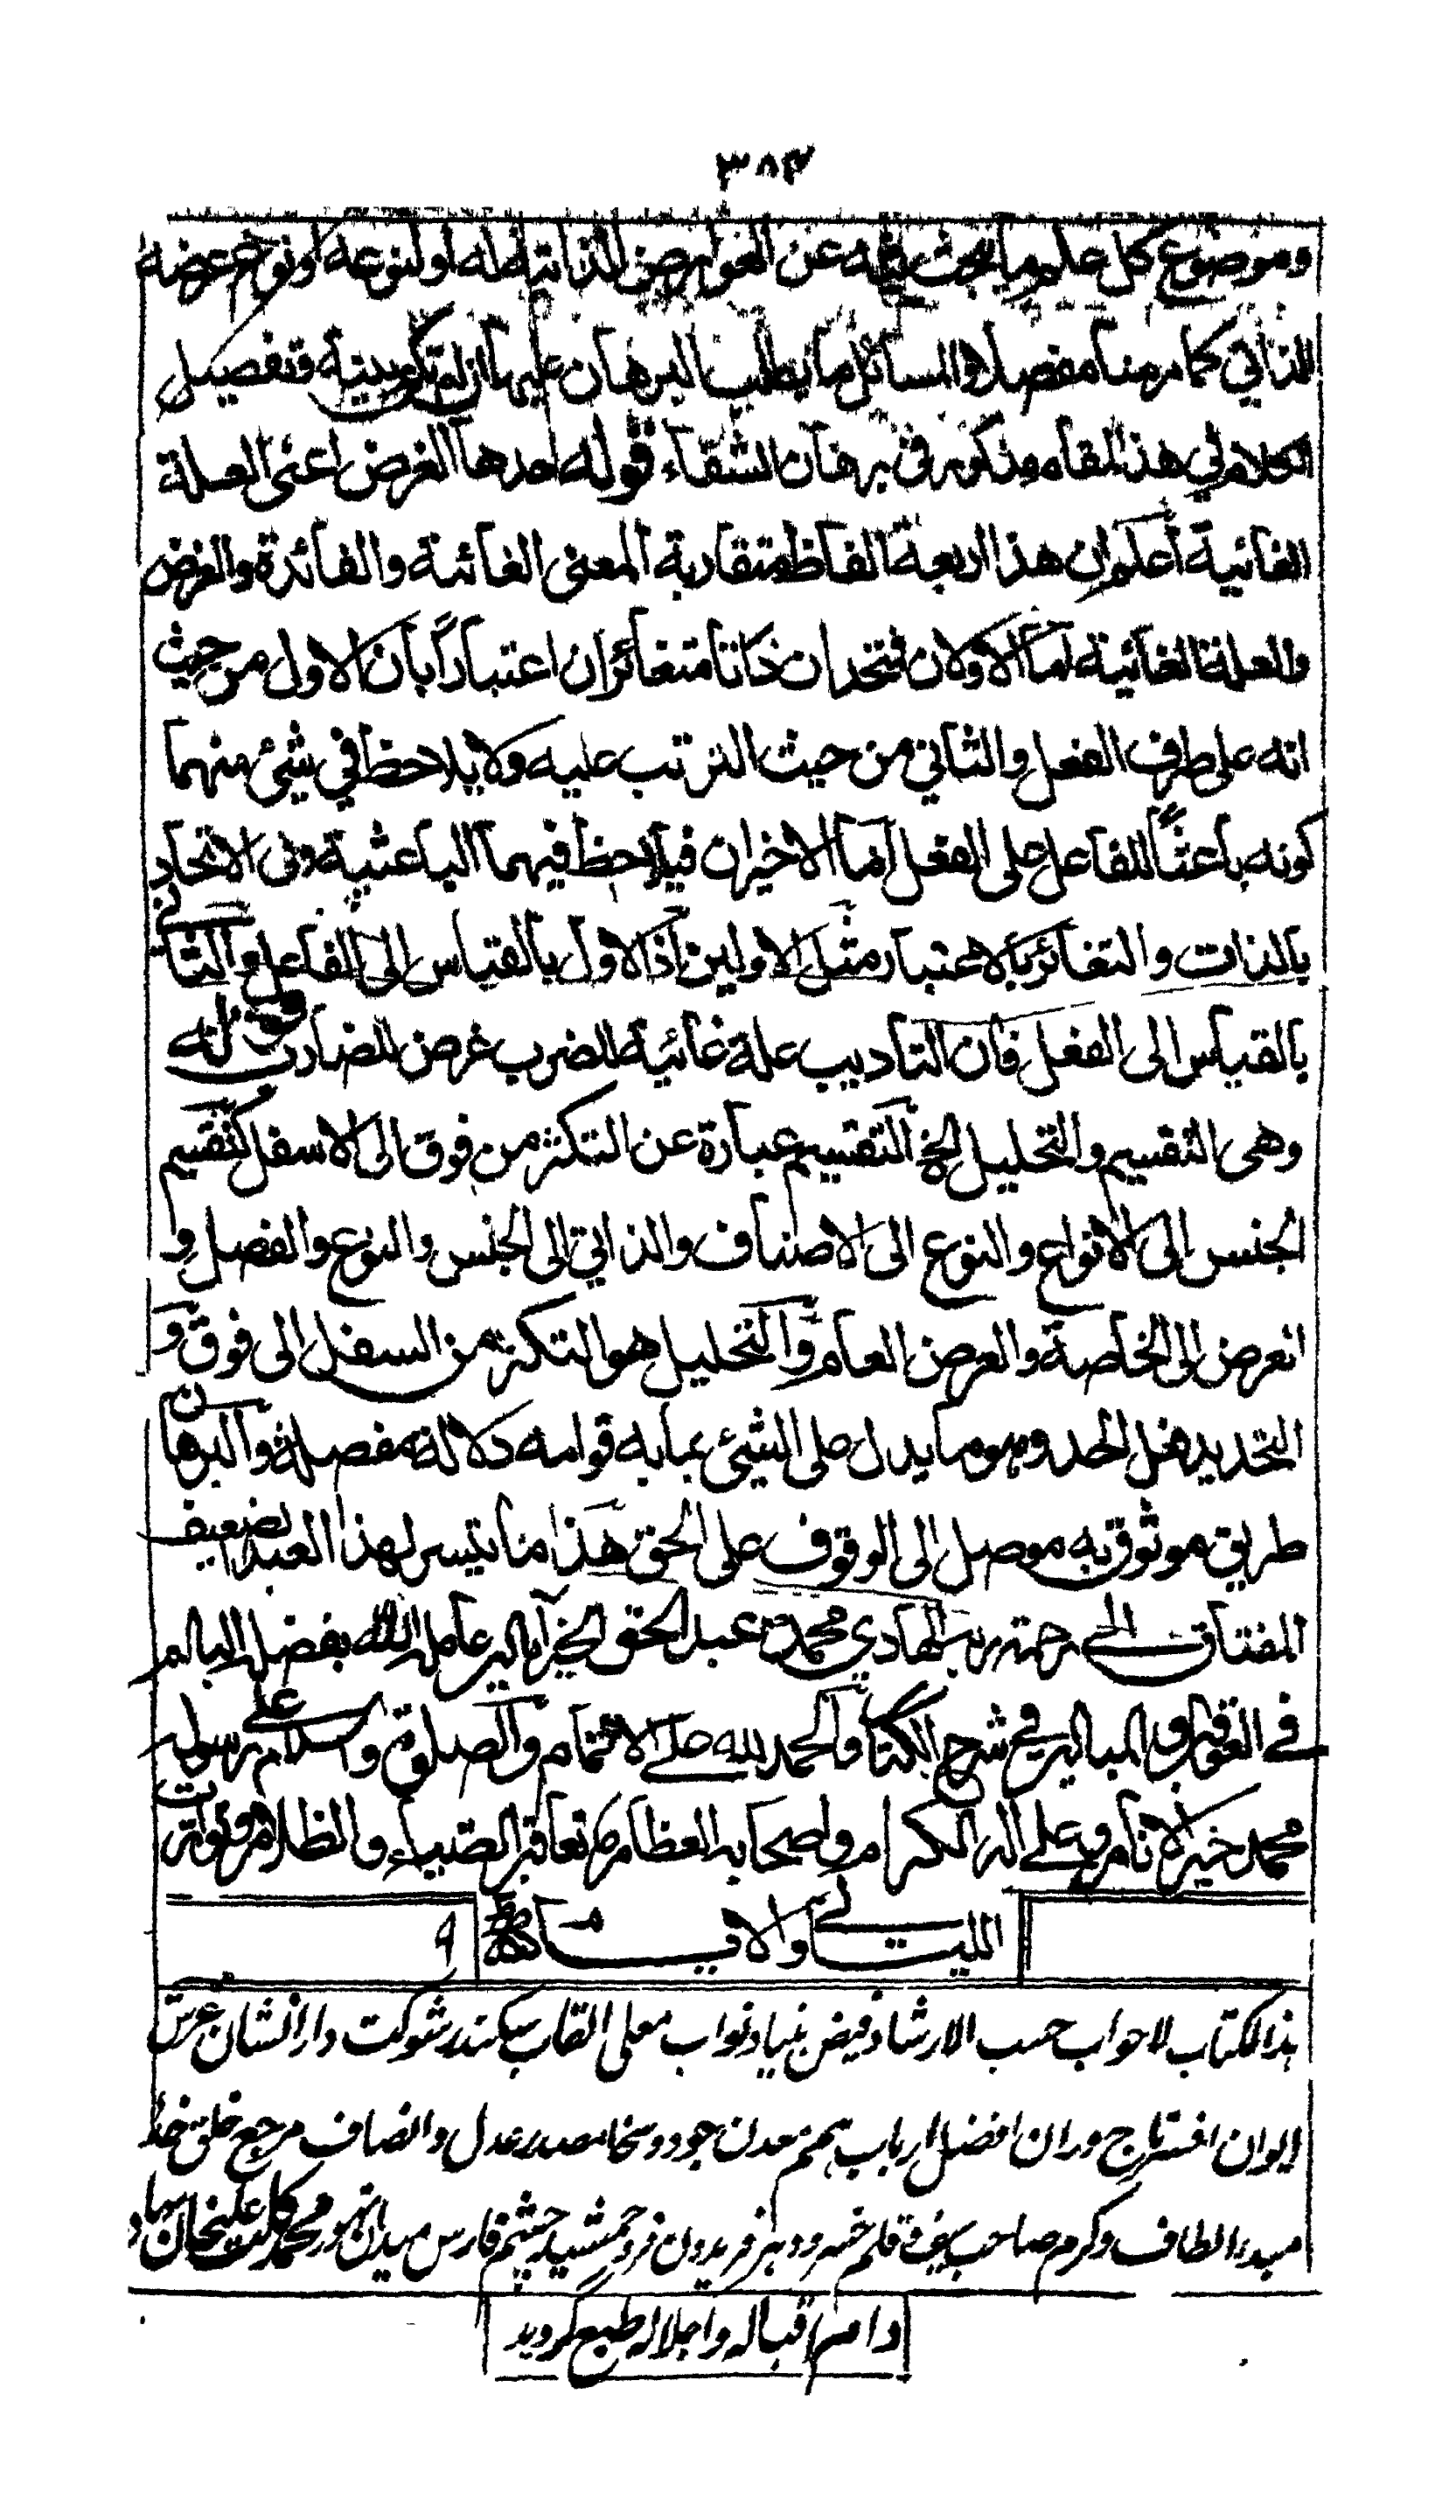 ٣٨٣
وموضوع كل علم ما يبحث فيه عن العوارض الذاتية له او لنوعه او نوع عرضه
الذاتي كما مر منا مفصلا والمسائل ما يطلب البرهان عليها ان لم تكن بينة وتفصيل
الكلام في هذا المقام مذكور في برهان الشفاء قوله احدها الغرض اعنى العلة
الغائية اعلم ان هذا اربعة الفاظ متقاربة المعنى الغائية والفائدة والغرض
والعلة الغائية اما الاولان فمتحدان ذاتا متغائران اعتباراً بان الاول من حيث
انه على طرف الفعل والثاني من حيث الترتب عليه ولا يلاحظ في شئ منهما
كونه باعثاً للفاعل على الفعل اما الاخيران فيلاحظ فيهما الباعثية وفى الاتحاد
بالذات والتغائر بالاعتبار مثل الاولين اذ الاول بالقياس الى الفاعل والثانى
بالقياس الى الفعل فان التاديب علة غائية للضرب غرض للضارب قوله
وهى التقسيم والتحليل الخ التقسيم عبارة عن التكثر من فوق الى الاسفل كتقسيم
الجنس الى الانواع والنوع الى الاصناف والذاتي الى الجنس والنوع والفصل و
العرض الى الخاصة والعرض العام والتحليل هو التكثر من السفل الى فوق و
التحديد فعل الحد وهو ما يدل على الشئ بما به قوامه دلالة مفصلة والبرهان
طريق موثوق به موصل الى الوقوف على الحق هذا ما تيسر لهذا العبد الضعيف
المفتاق الى رحمة ربه الهادي محمد عبد الحق الخيرآبادي عامله الله بفضله
في العواقب والمبادي في شرح الكتاب والحمد لله على الاتمام والصلوة والسلام على رسوله
محمد خير الانام وعلى اله الكرام واصحابه العظام ما تعاقب الضياء والظلام وتواترت
الليالي والايام
هذا الكتاب لاجواب حسب الارشاد فيض بنياد نواب معلى القاب سكندر شوكت دارا نشان عرش
ايوان افسر تاج وران افضل ارباب همم معدن جود و سخا مصدر عدل و انصاف مرجع خلق خدا
مبدء الطاف و كرم صاحب سيف و قلم خسرو دهر فريدون فر جمشيد حشم فارس ميدان تهور محمد كلب عليخان بهادر
دام اقباله و اجلاله طبع گرديد